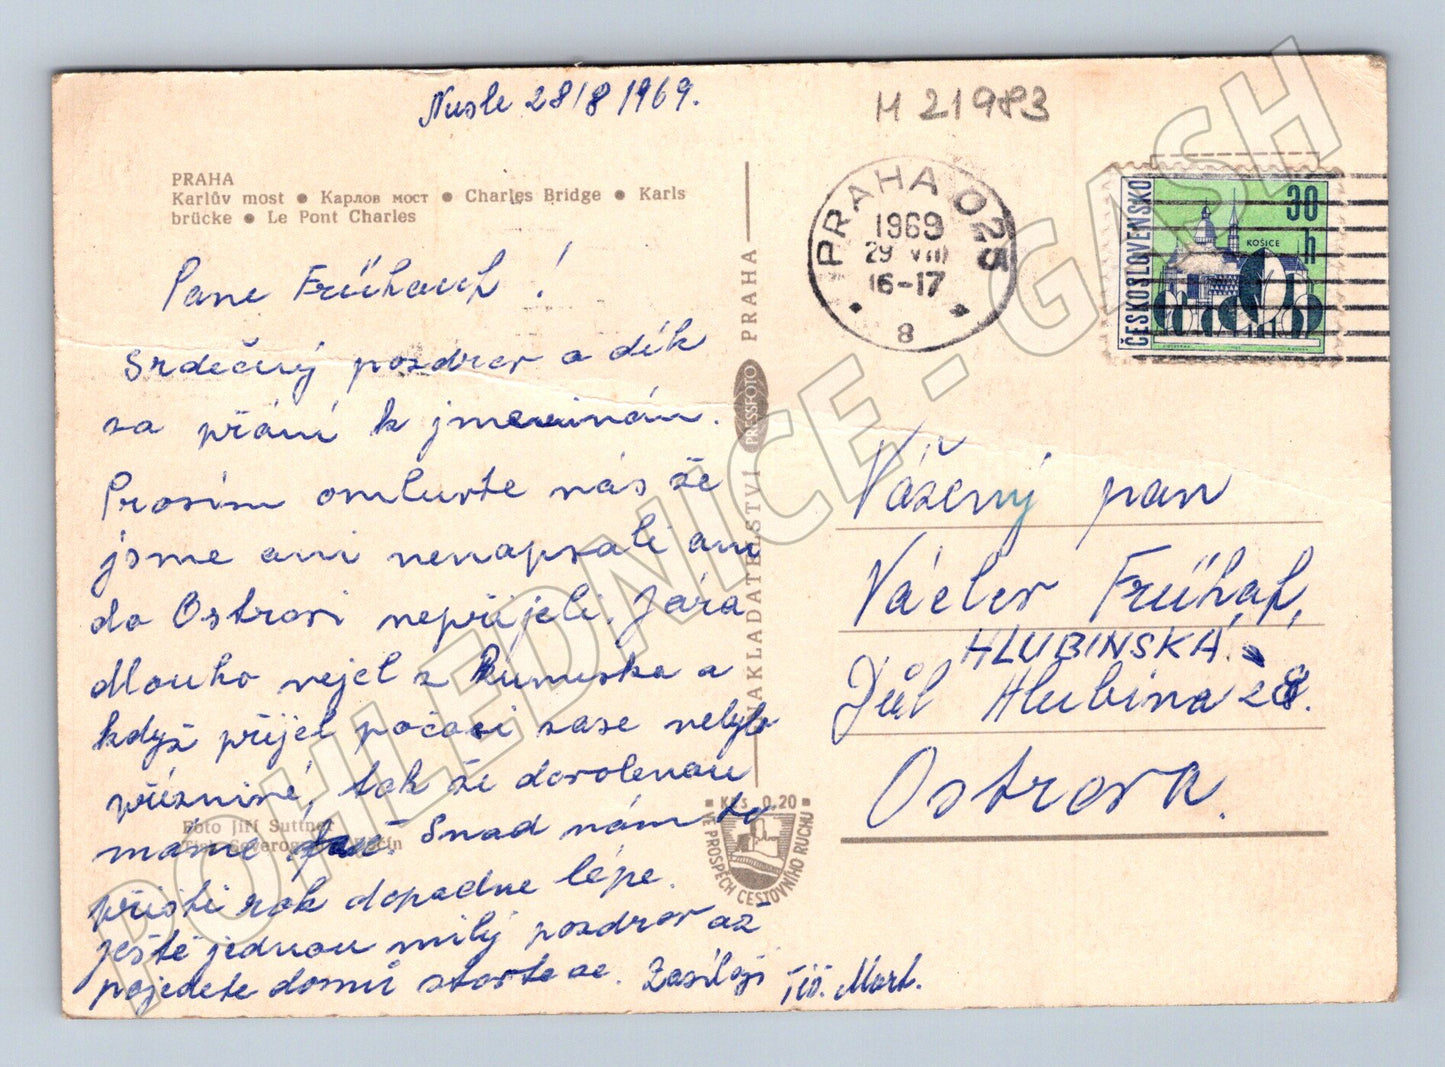 Nusle 28/8 1969.
M 21983
PRAHA
Karlův most ● Карлов мост ● Charles Bridge ● Karls
brücke ● Le Pont Charles
Pane Frühauf !
Srdečný pozdrav a dík
za přání k jmeninám.
Prosím omluvte nás že
jsme ani nenapsali ani
do Ostravi nepřijeli. Jára
dlouho nejel z Rumuska a
když přijel počasi zase nebylo
příznivé, tak že dovolenou
máme. Snad nám to
přisti rok dopadne lépe.
ještě jednou milý pozdrav až
pojedete domů stavte se. Zasílají
Foto Jiří Suttner
Tisk Severografia Děčín
NAKLADATELSTVÍ PRESSFOTO PRAHA
Kčs 0.20
VE PROSPĚCH CESTOVNÍHO RUCHU
PRAHA 025
1969
29 VIII
16-17
8
ČESKOSLOVENSKO
30
h
KOŠICE
Vážený pan
Václav Frühaf,
HLUBINSKÁ.
Důl Hlubina 28.
Ostrava.
POHLEDNICE - GASH